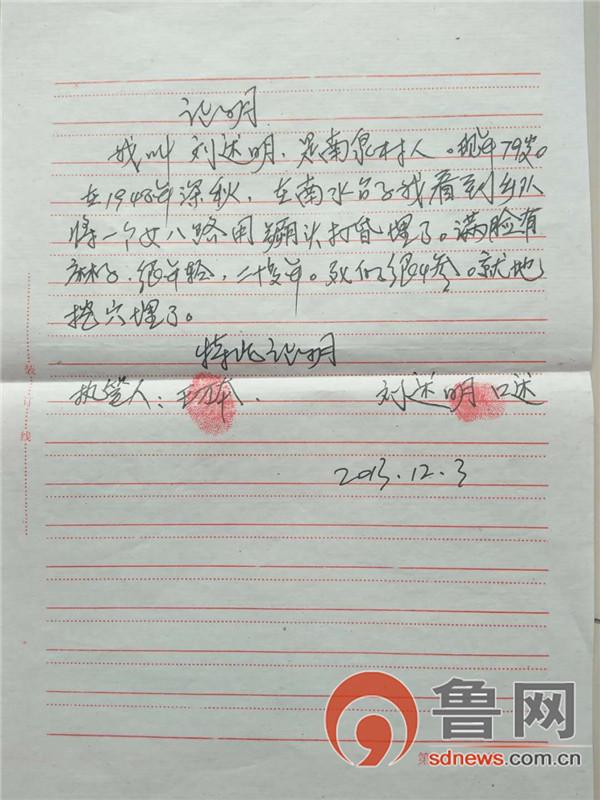 证明
我叫刘述明，是南泉村人。现年79岁。
在1943年深秋，在南水台子我看到乡队
将一个女八路用镢头打昏埋了。满脸有
麻子，很年轻，二十岁。死的很惨。就地
挖穴埋了。
特此证明
执笔人：
刘述明 口述
2013.12.3
装 订 线
鲁网
第
sdnews.com.cn